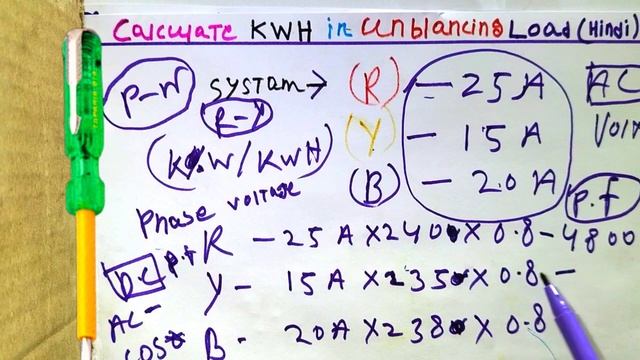 Calculate KWH in unblancing Load (Hindi)
P-N system → (R) - 25 A AC
R-Y (Y) - 15 A Volt
(K.W/KWH) (B) - 20 A p.f
Phase voltage
p.f R - 25 A X 240 X 0.8 - 4800
DC Y - 15 A X 235 X 0.8 -
AC - B - 20 A X 238 X 0.8
cos